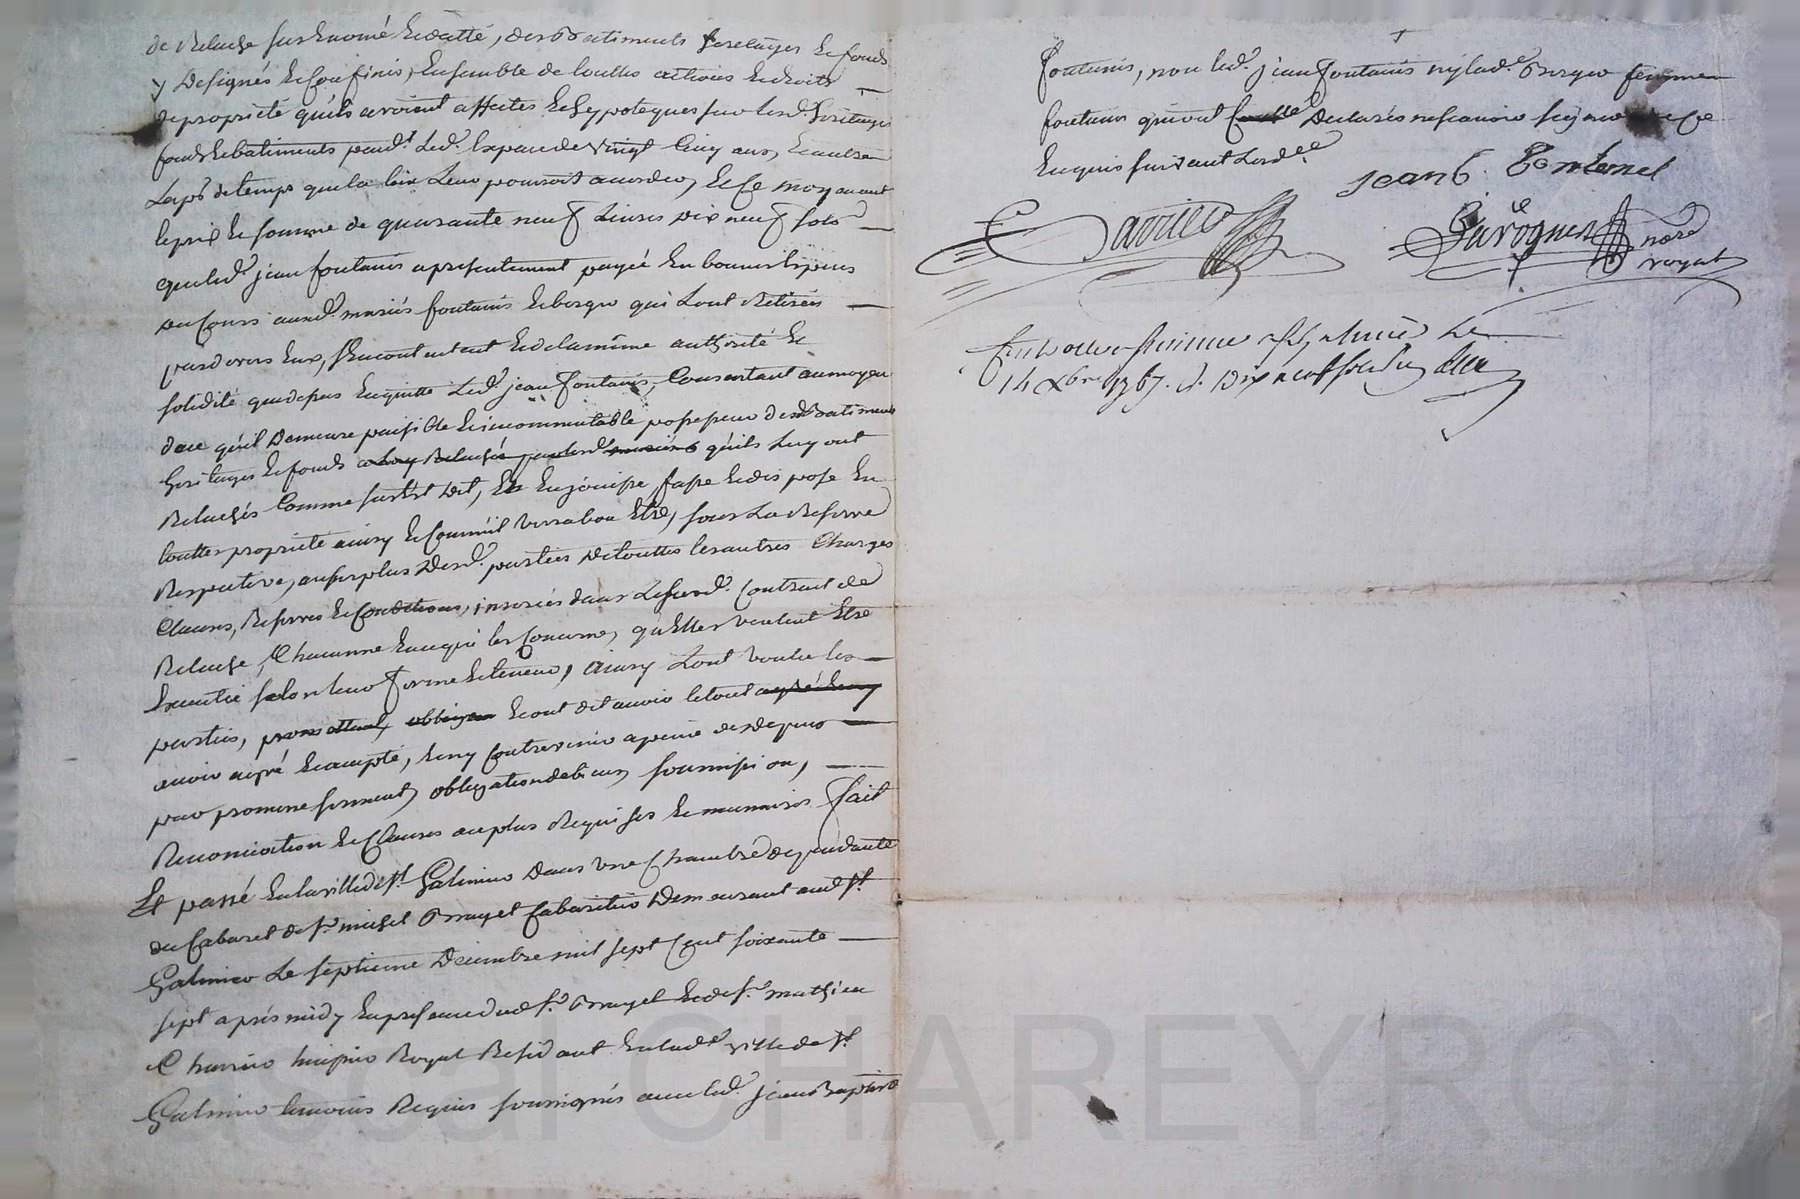 de Relache susenoncé et datté, desd. batiments heretages et fonds
y designés et confinés, Ensemble de touttes actions et droits
de propriété qu'ils avoient affectés et hypotequés sur lesd. heritages
fonds et batiments pend.t led. Espace de vingt Cinq ans, et autre
Laps de temps que la loix Leur pourroit accorder, et Ce moyenant
le prix et somme de quarante neuf Livres dix neuf sols
que led. jean fontanis a presentement payée En bonnes Espèces
du Cours auxd. mariés fontanis et borgne qui Lont Retirée
pardevers Eux, s'en contentent et de la même authorité et
solidité que depuis En quitte Led. jean fontanis, Consentant au moyen
dece qu'il Demeure paisible et incommutable possesseur desd. Batiments
heritages et fonds a Luy Relachés par lesd. mariés qu'ils Luy ont
Relachés Comme sus Est dit, Et En jouisse, fasse et dispose En
toutte propriété ainsy et Comm'il verra bon Etre, sous La Reserve
Respective, au surplus Desd. parties De touttes les autres Charges
Clauses, Reserves et Conditions, inserées dans Le susd. Contract de
Relache, Chacunne En ce qui les Concerne, qu'Elles veulent Etre
Executée selon leur forme et teneur, ainsy Lont voulu les
parties, promettant, obligeant et ont dit avoir le tout agréé
avoir agréé et accepté, et n'y Contrevenir a peine des depens
par promesse serment, obligation de biens, soumission,
Renonciation et Clauses au plus Requises et necessaires fait
Et passé En la ville de St. Galmier Dans une Chambre dependante
du Cabaret de Sr. michel Brayet Cabaretier Demeurant aud. St.
Galmier Le septieme Decembre mil sept Cent soixante
sept aprés midy En presence dud. Sr. Brayet et de Sr. mathieu
Charrier huissier Royal Residant En lad.e ville de St.
Galmier temoins Requis soussignés avec led. jean Baptiste
fontanis, non led. jean fontanis ny lad.e Borgne femme
fontanis qui ont Declarés ne scavoir signer de Ce
Enquis suivant Lord.ce
jean b. fontenel
not.e
royal
Controllé a St. Galmier Le
14 Xbre 1767. R. Dix neuf sols